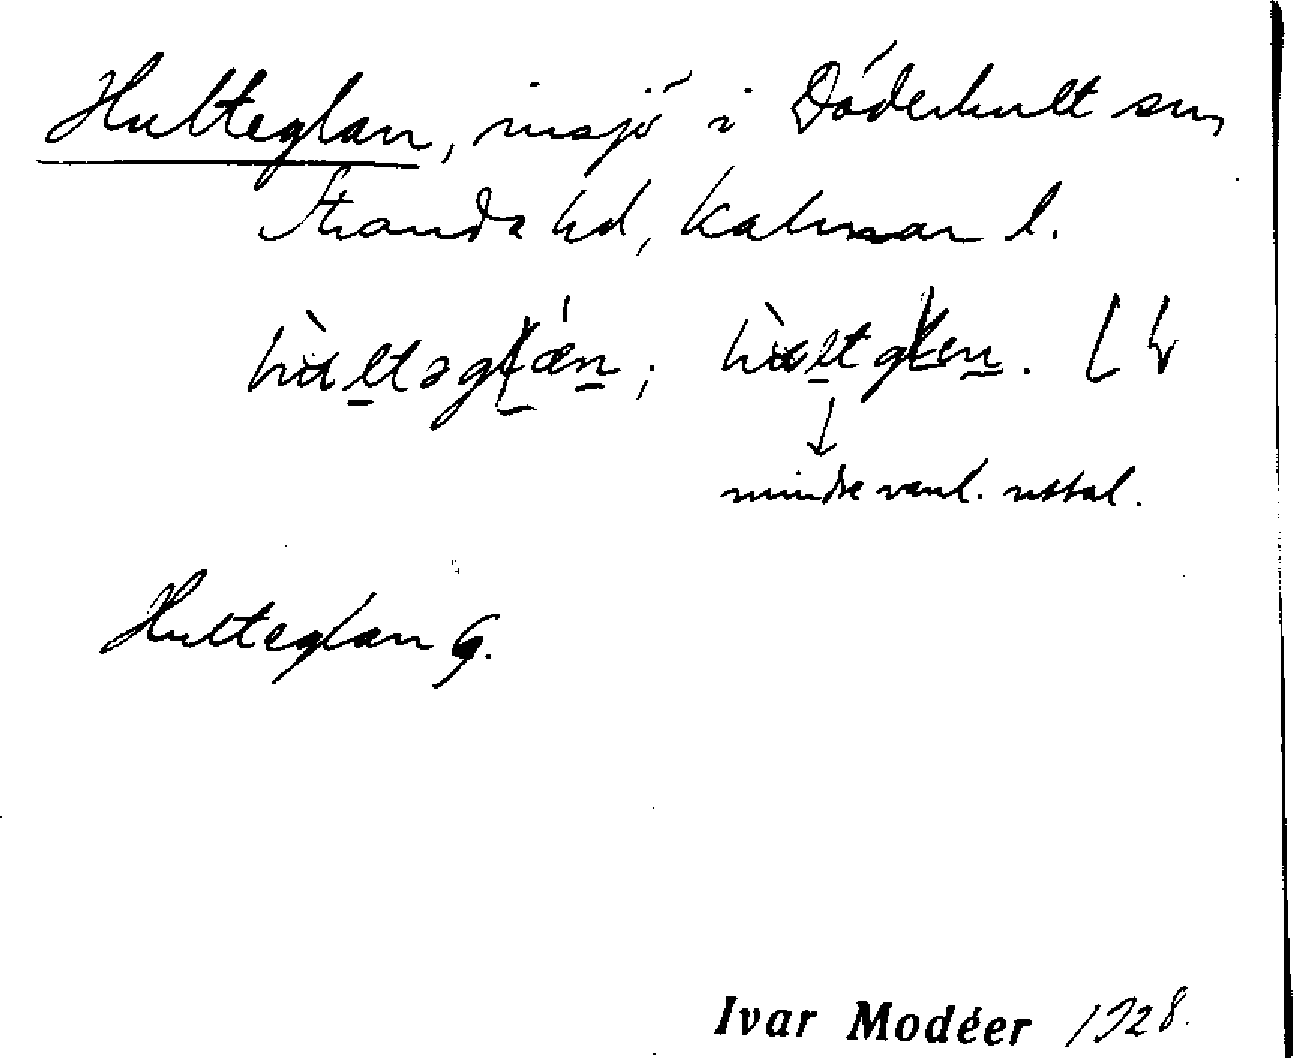 Hulteglan, insjö i Döderhult sn,
Stranda hd, Kalmar l.
hùltəglæ̀n; hùltglen.
mindre vanl. uttal.
Hulteglan G.
Ivar Modéer 1928.